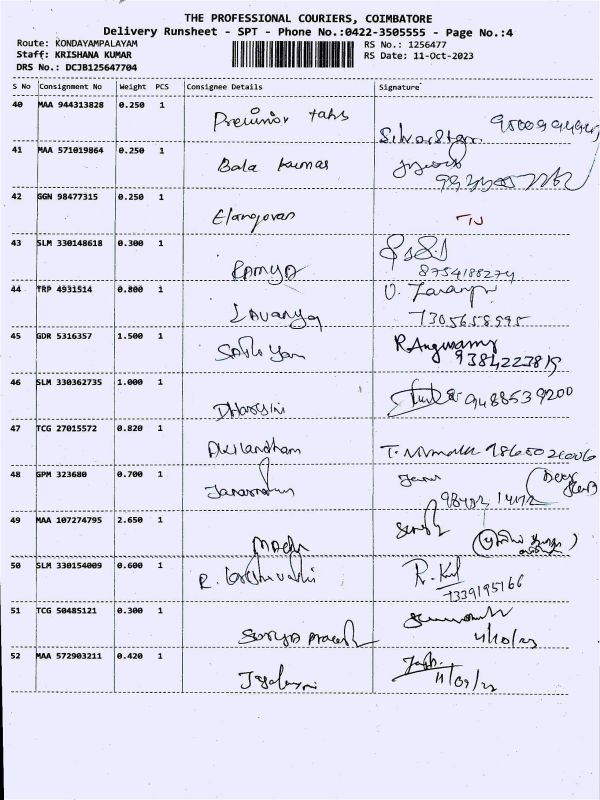 THE PROFESSIONAL COURIERS, COIMBATORE
Delivery Runsheet - SPT - Phone No.:0422-3505555 - Page No.:4
Route: KONDAYAMPALAYAM
Staff: KRISHANA KUMAR
DRS No.: DCJB125647704
RS No.: 1256477
RS Date: 11-Oct-2023
S No Consignment No Weight PCS Consignee Details Signature
40 MAA 944313828 0.250 1
41 MAA 571019864 0.250 1 Bala Kumar
42 GGN 98477315 0.250 1 Elangovan
43 SLM 330148618 0.300 1 Ramya
8754188274
44 TRP 4931514 0.800 1 Lavanya
7305658595
45 GDR 5316357 1.500 1 R Angusamy
9384223815
46 SLM 330362735 1.000 1 Dharsini 9488539200
47 TCG 27015572 0.820 1 Akilandham T. Nirmala
48 GPM 323680 0.700 1
49 MAA 107274795 2.650 1 Madhu
50 SLM 330154009 0.600 1 R.
7339195766
51 TCG 50485121 0.300 1 Surya Prakash
11/10/23
52 MAA 572903211 0.420 1